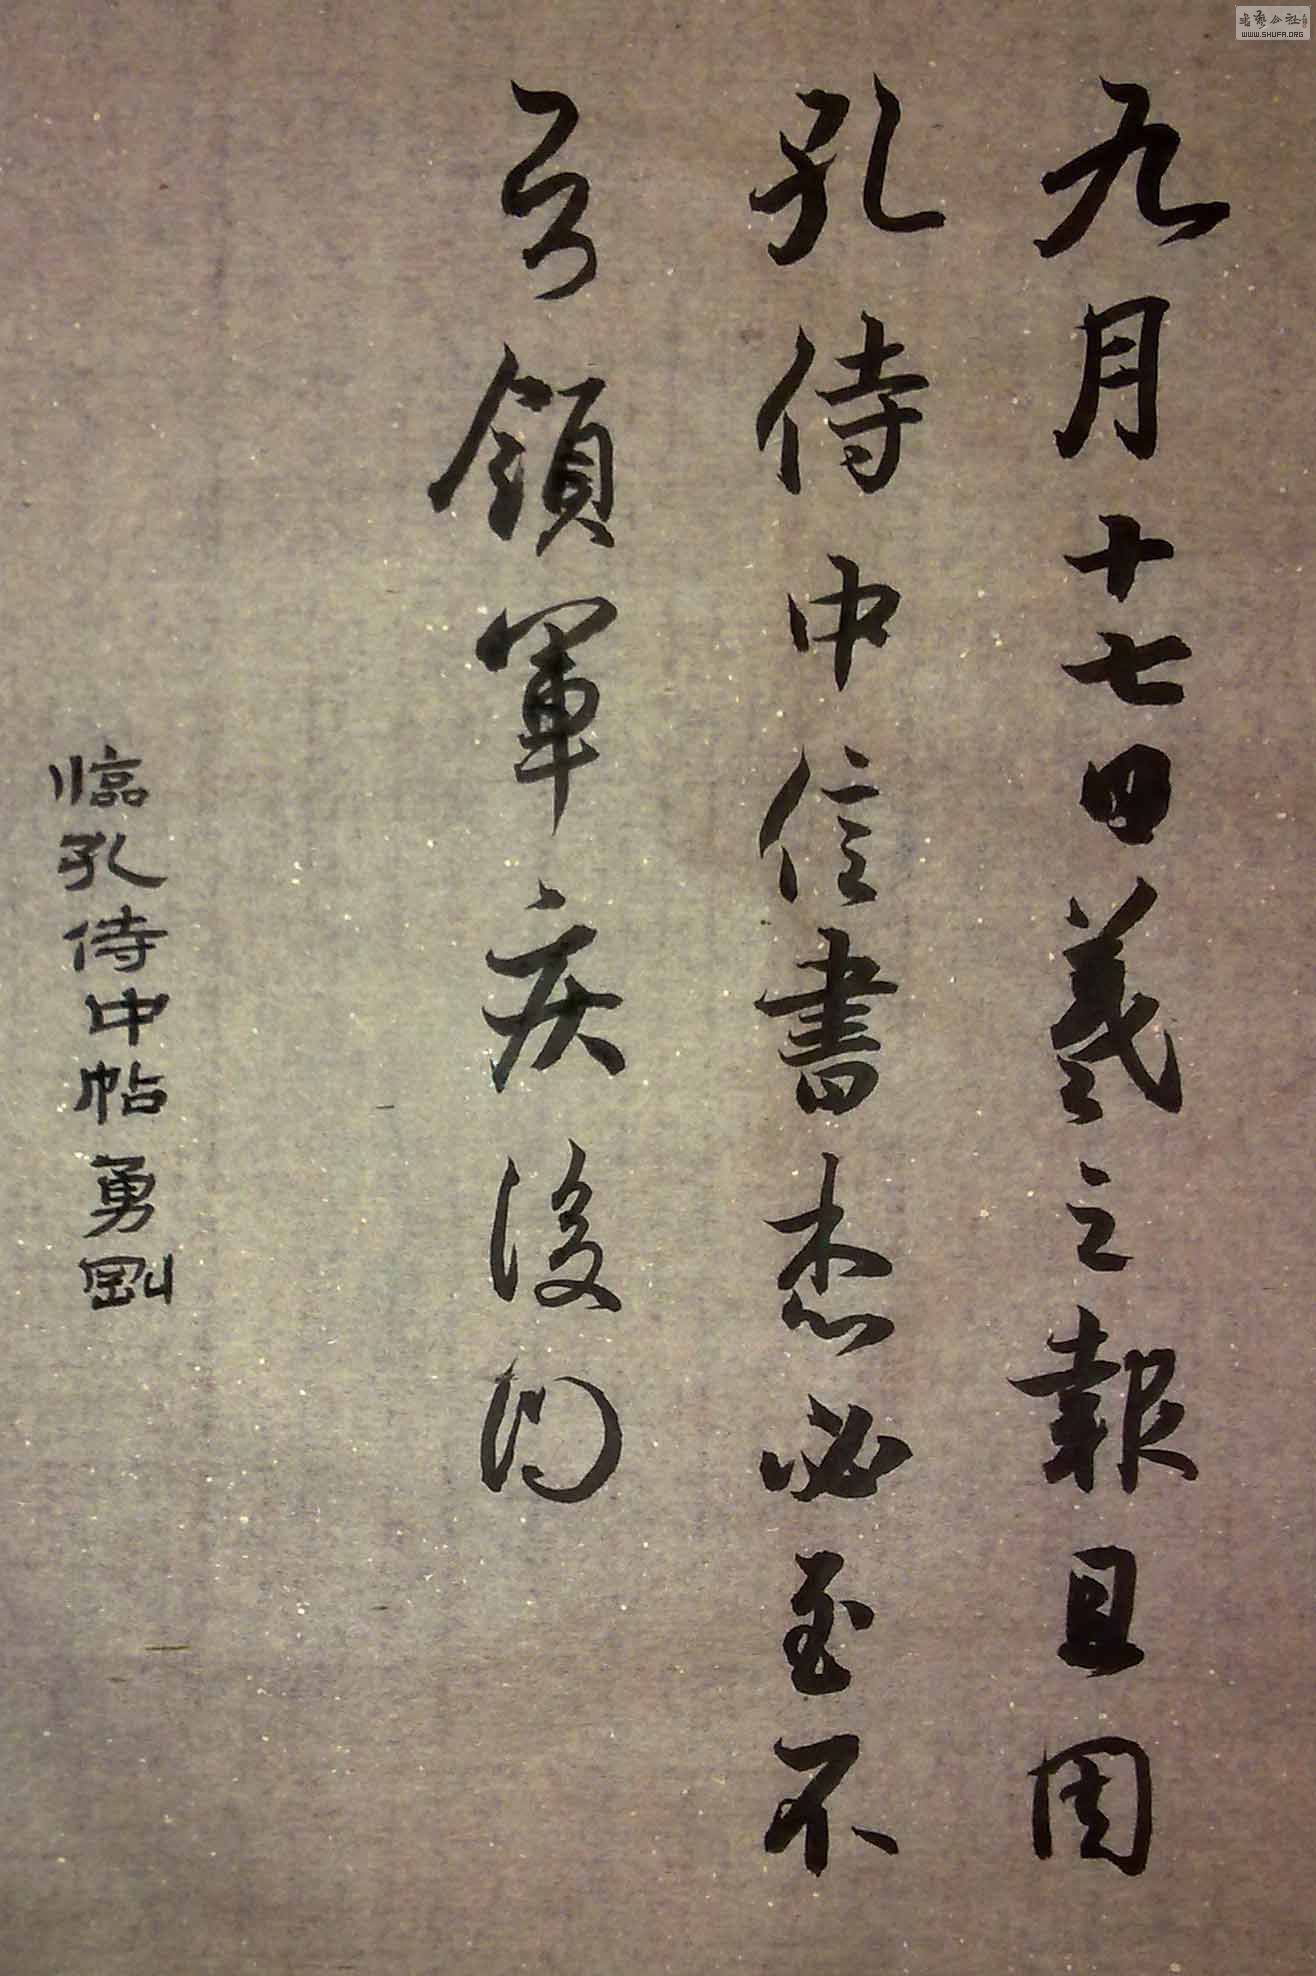 九月十七日羲之報且因
孔侍中信書想必至不
知領軍疾後問
臨孔侍中帖勇剛
书艺公社
WWW.SHUFA.ORG